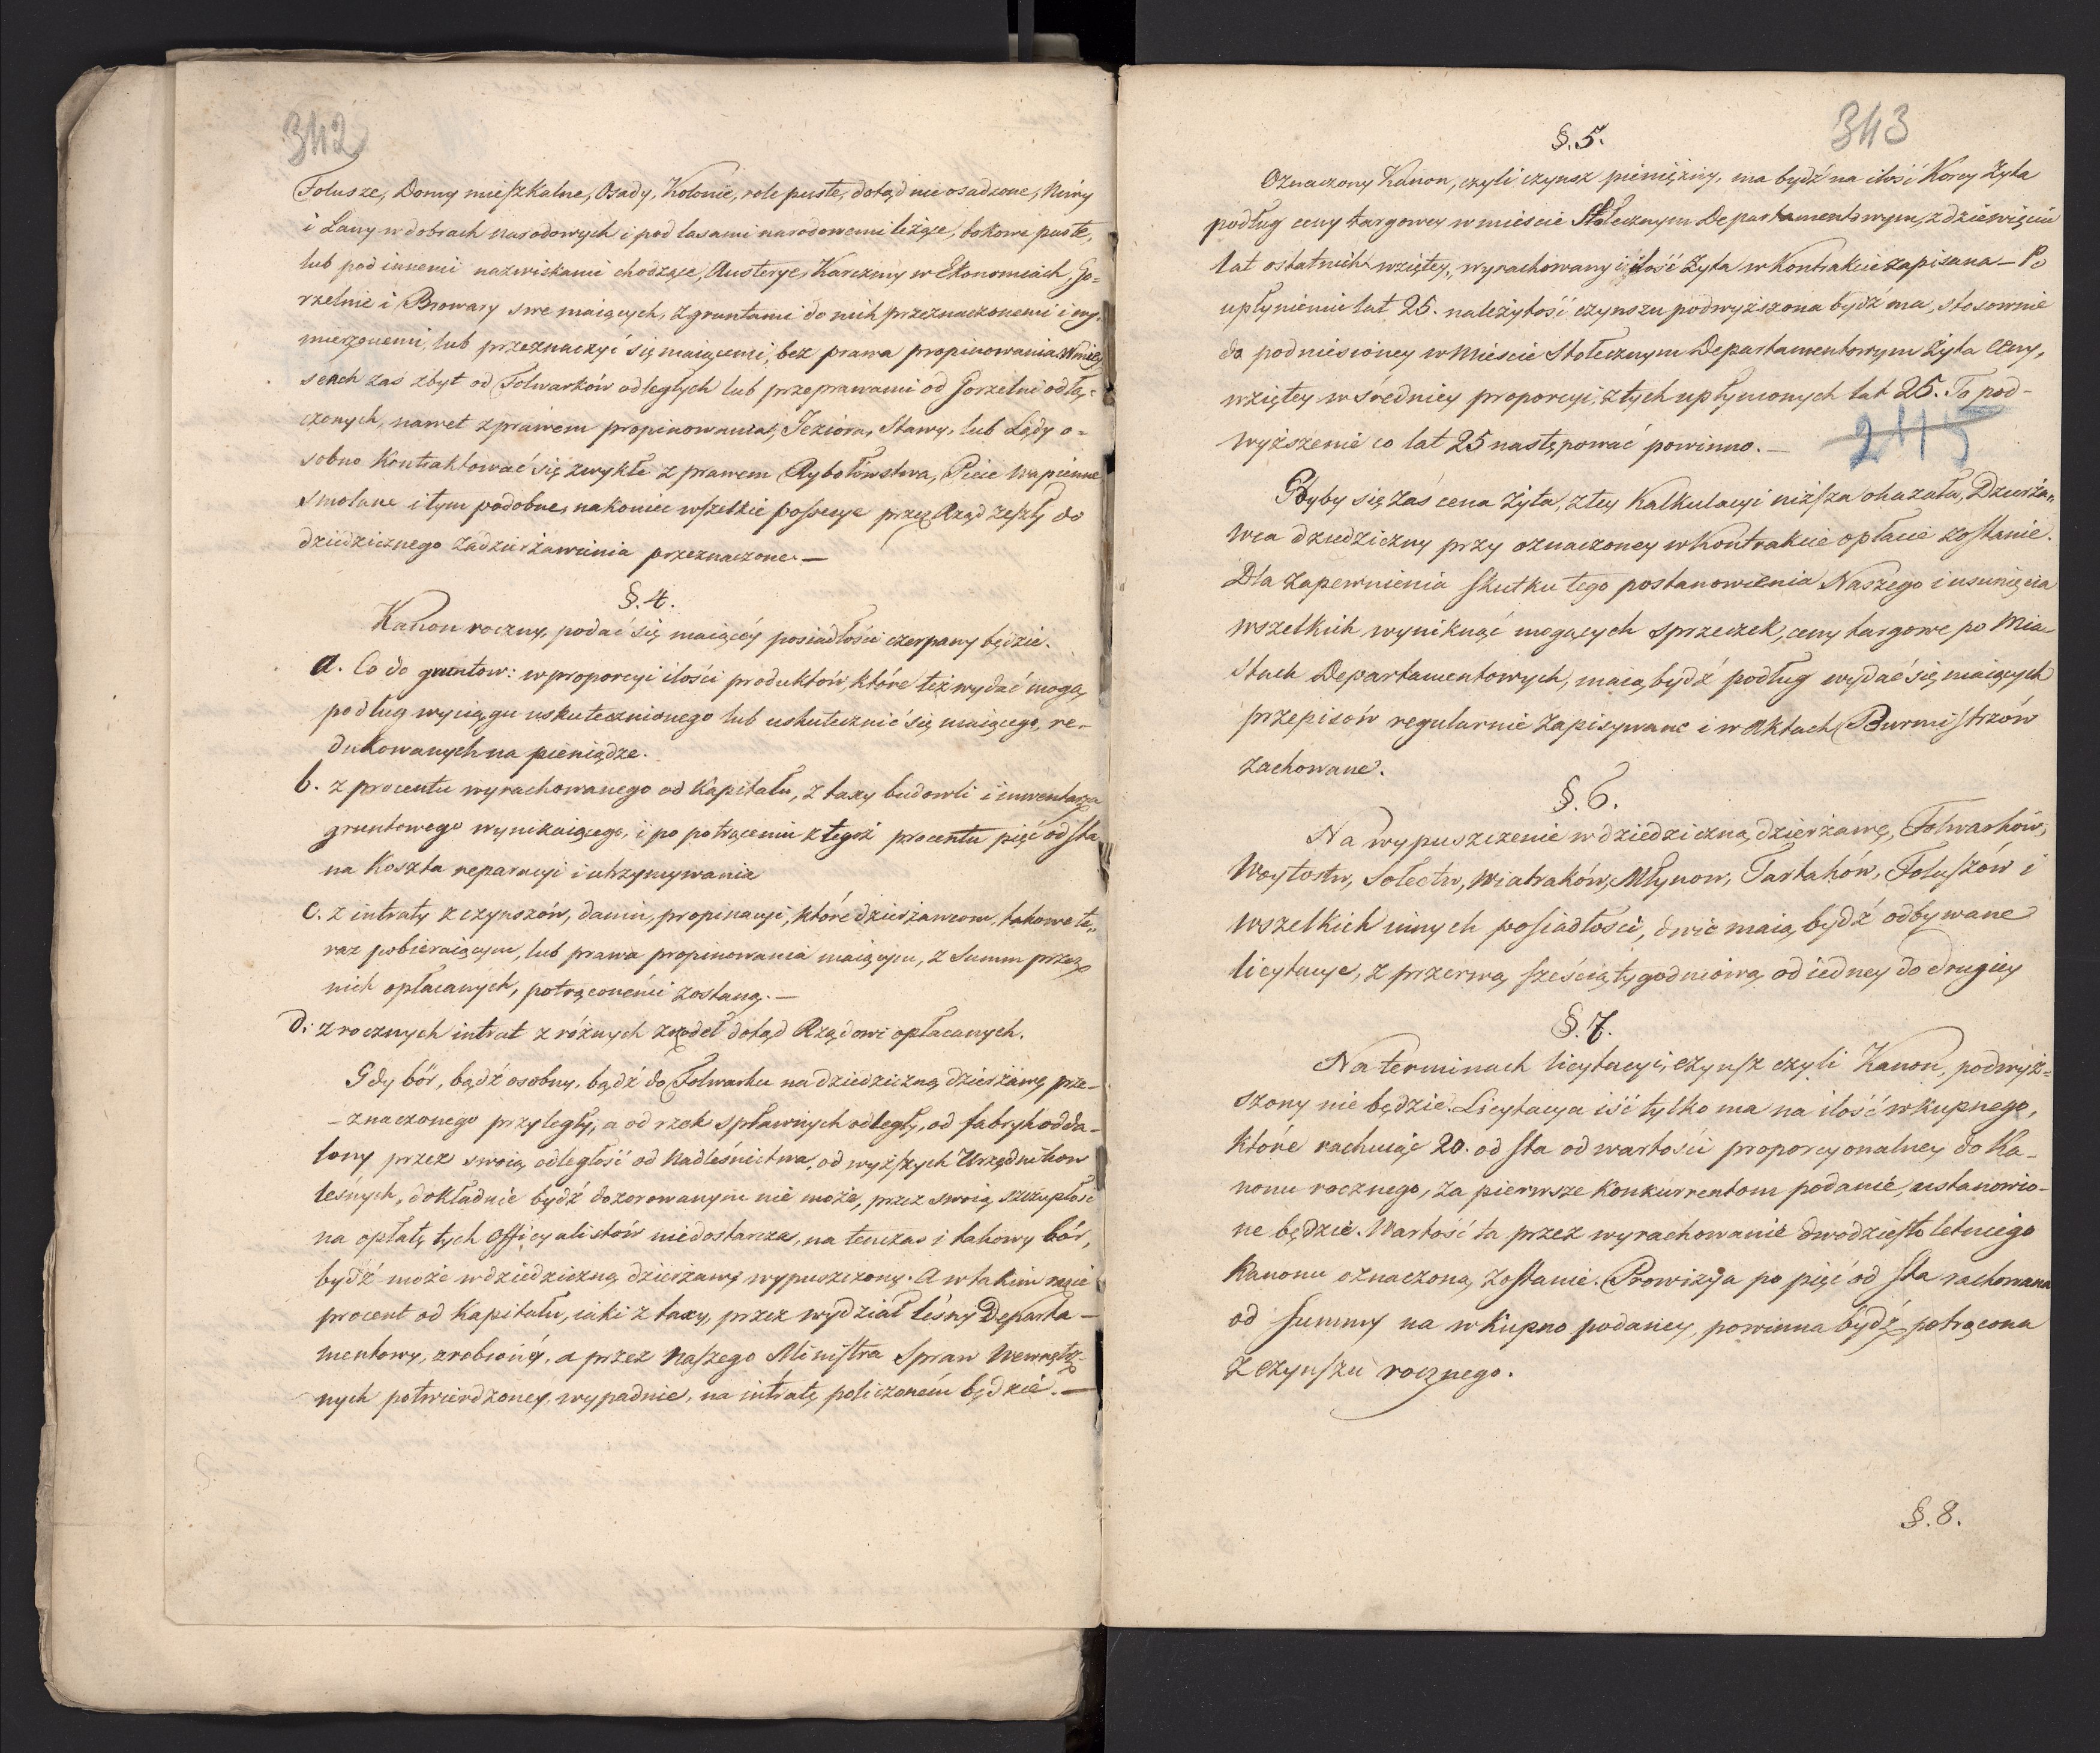 342
Folusze, Domy mieszkalne, Osady, Kolonie, role puste, dotąd nie osadzone, Niwy
i Łany w dobrach narodowych i pod lasami narodowemi leżące, bokowe puste,
lub pod innemi nazwiskami chodzące, Austerye, Karczmy w Ekonomiach, Go=
rzelnie i Browary swe maiących, z gruntami do nich przeznaczonemi i wy-
mierzonemi, lub przeznaczyć się maiącemi, bez prawa propinowania. W miey-
scach zaś zbyt od Folwarków odległych lub przeprawami od Gorzelni odłą-
czonych, nawet z prawem propinowania, Jeziora, Stawy, lub Lądy o=
sobno Kontraktować się zwykłe z prawem Rybołówstwa, Piece Wapienne
Smolane i tym podobne, nakoniec wszelkie possesye przez Rząd zeszły do
dziedzicznego zadzierżawienia przeznaczone. —
§. 4.
Kanon roczny, podać się maiącéy posiadłości czerpany będzie.
a. Co do gruntow: w proporcyi ilości produktów, które też wydać mogą,
podług wyciągu uskutecznionego lub uskutecznić się maiącego, re-
dukowanych na pieniądze.
b. z procentu wyrachowanego od Kapitału, z taxy budowli i inwentarza
gruntowego wynikaiącego, i po potrąceniu z tegoż procentu pięć od sta
na Koszta reparacyi i utrzymywania
c. z intraty z czynszów, danin, propinacyi, które dzierżawcom, takowe te„
raz pobieraiącym, lub prawa propinowania maiącym, z Summ przez
nich opłacanych, potrąconemi zostaną. —
d. z rocznych intrat z różnych źrodeł dotąd Rządowi opłacanych.
Gdy bór, bądź osobny, bądź do Folwarku na dziedziczną dzierżawę prze-
- znaczonego przyległy, a od rzek spławnych odległy, od fabryk odda-
lony przez swoią odległość od Nadleśnictwa, od wyższych Urzędnikow
leśnych, dokładnie bydź dozorowanym nie może, przez swoią szczupłość
na opłatę tych Officyalistów niedostarcza, na tenczas i takowy bór,
bydź może w dziedziczną dzierżawę wypuszczony. A w takim razie
procent od Kapitału, iaki z taxy, przez wydział leśny Departa-
mentowy, zrobioney, a przez Naszego Ministra Spraw Wewnętrz-
nych potwierdzoney, wypadnie, na intratę policzonem będzie. —
343
§. 5.
Oznaczony Kanon, czyli czynsz pieniężny, ma bydź na ilość Korcy Żyta
podług ceny targowey w mieście Stołecznym Departamentowym, z dziewięciu
lat ostatnich wziętey, wyrachowany i ilość Żyta w Kontrakcie zapisana — Po
upłynieniu lat 25. należytość czynszu podwyższona bydź ma, stosownie
do podniesioney w Mieście Stołecznym Departamentowym Żyta ceny,
wziętey w średniey proporcyi, z tych upłynionych lat 25. To pod-
wyższenie co lat 25 następować powinno. —
245
Gdyby się zaś cena Żyta, z tey Kalkulacyi niższa okazała, Dzierża„
wca dziedziczny przy oznaczoney w Kontrakcie opłacie zostanie.
Dla zapewnienia skutku tego postanowienia Naszego i usunięcia
wszelkich wyniknąć mogących sprzeczek, ceny targowe po Mia-
stach Departamentowych, maią bydź podług wydać się maiących
przepisów regularnie zapisywane i w Aktach Burmistrzów
zachowane.
§. 6.
Na wypuszczenie w dziedziczną dzierżawę, Folwarków,
Woytostw, Sołectw, Wiatraków, Młynow, Tartaków, Foluszów i
wszelkich innych posiadłości, dwie maią bydź odbywane
licytacye, z przerwą sześciątygodniową od iedney do drugiey
§. 7.
Na terminach licytacyi, czynsz czyli Kanon, podwyż=
szony nie będzie. Licytacya iść tylko ma na ilość wkupnego,
które rachuiąc 20. od sta od wartości proporcyonalney do Ka-
nonu rocznego, za pierwsze Konkurrentom podanie, ustanowio-
ne będzie. Wartość ta przez wyrachowanie dwódziesto letniego
Kanonu oznaczoną zostanie. Prowizya po pięć od sta rachowana
od Summy na wkupno podaney, powinna bydź potrącona
z czynszu rocznego.
§. 8.